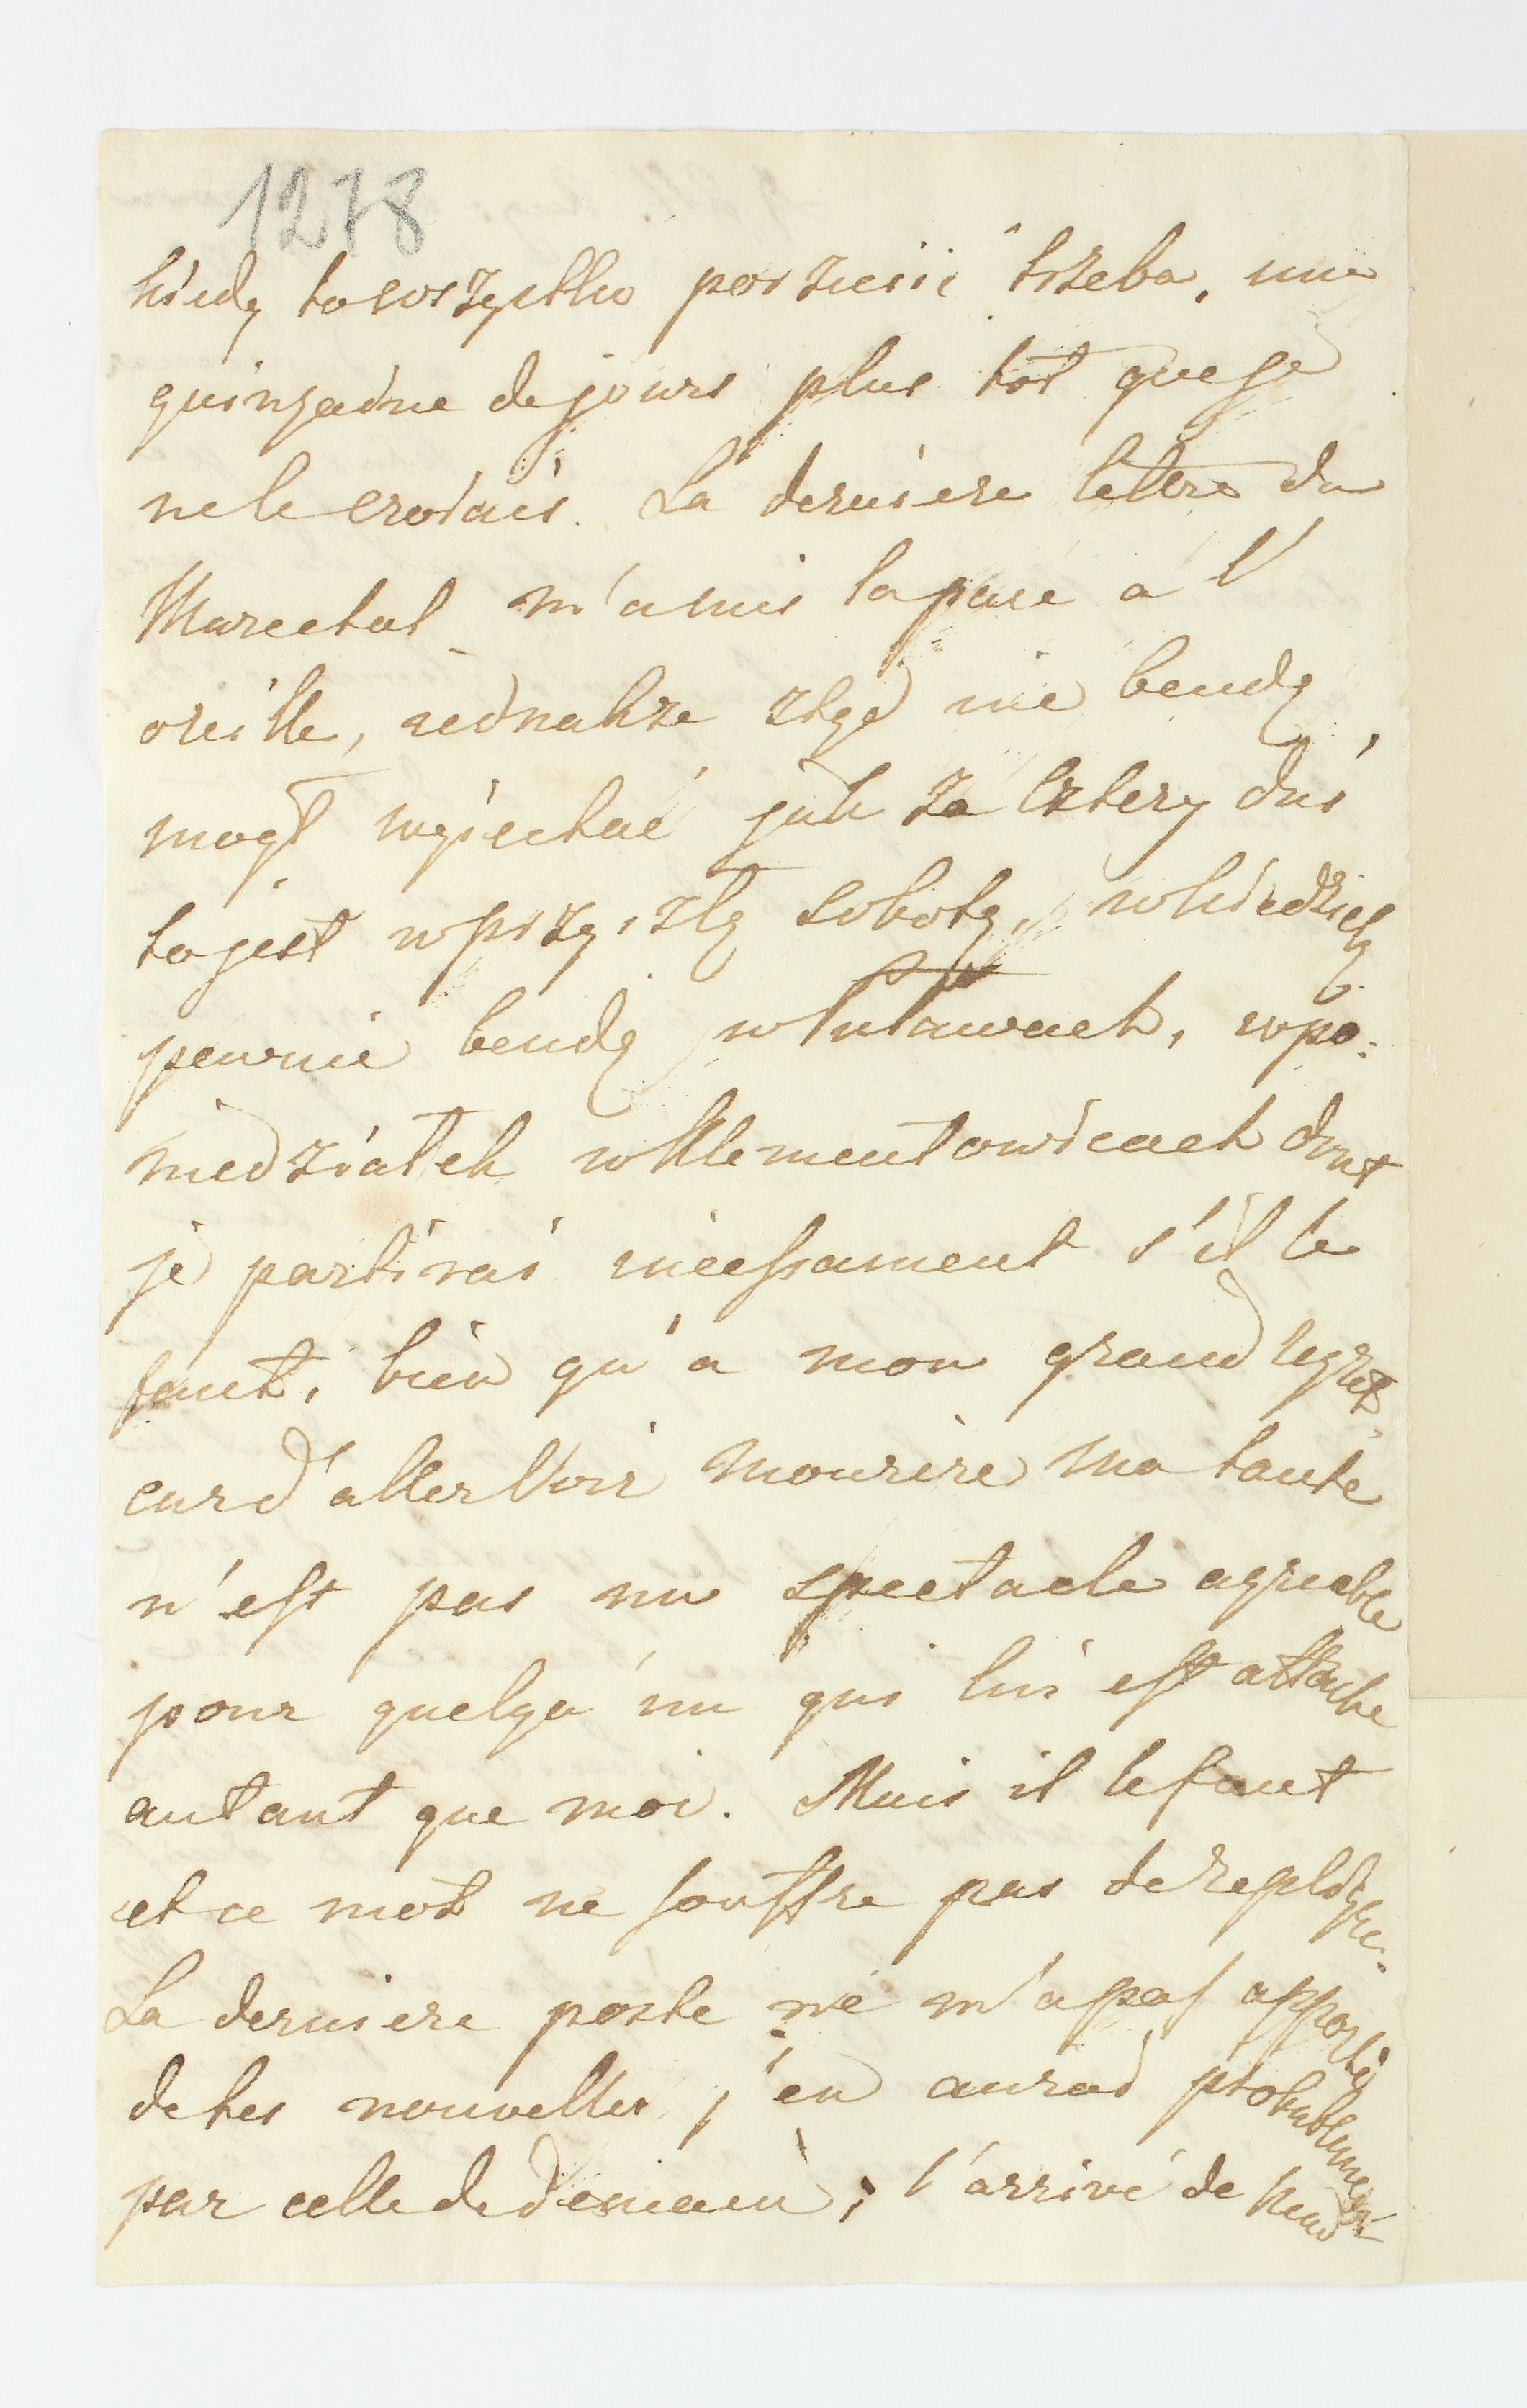 1278
kiedy to wszystko porzucić trzeba, une
quinzaine de jours plus tôt que je
ne le croiais. La derniere lettre du
Marechal m'a mis la puce a l'
oreille, jednakże ztąd nie bendę
mogł wyiechać jak za cztery dni
to jest w przyszłą sobotę, w Niedzielę
pewnie bendę w Puławach, w po:
niedziałek w Klementowicach dont
je partirai incessament s'il le
faut, bien qu'a mon grand regret,
car d'aller voir mourire ma tante
n'est pas un spectacle agreable
pour quelqu'un qui lui est attaché
autant que moi. Mais il le faut
et ce mot ne souffre pas de replique.
La derniere poste ne m'a pas apporté
de tes nouvelles, j'en aurai probablement
par celle de demain; l'arrivé de